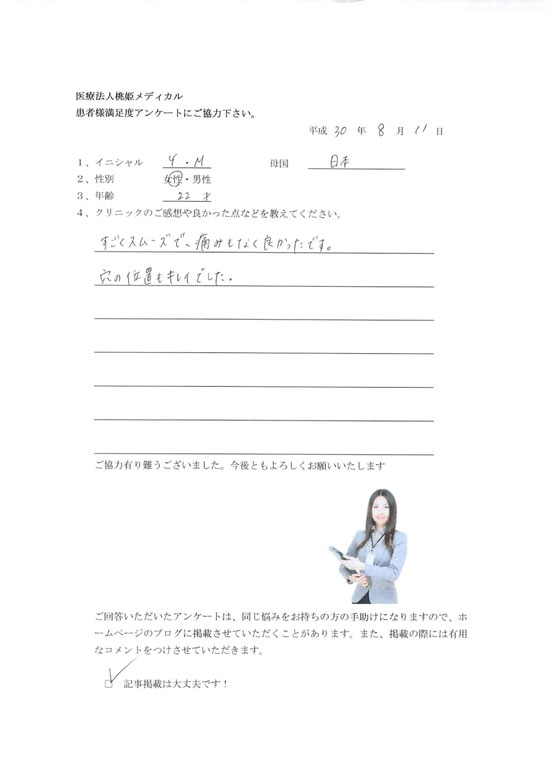 医療法人桃姫メディカル
患者様満足度アンケートにご協力下さい。
平成 30 年 8 月 11 日
1、イニシャル Y・M 母国 日本
2、性別 女性・男性
3、年齢 22 才
4、クリニックのご感想や良かった点などを教えてください。
すごくスムーズで、痛みもなく良かったです。
穴の位置もキレイでした。
ご協力有り難うございました。今後ともよろしくお願いいたします
ご回答いただいたアンケートは、同じ悩みをお持ちの方の手助けになりますので、ホ
ームページのブログに掲載させていただくことがあります。また、掲載の際には有用
なコメントをつけさせていただきます。
☑ 記事掲載は大丈夫です!